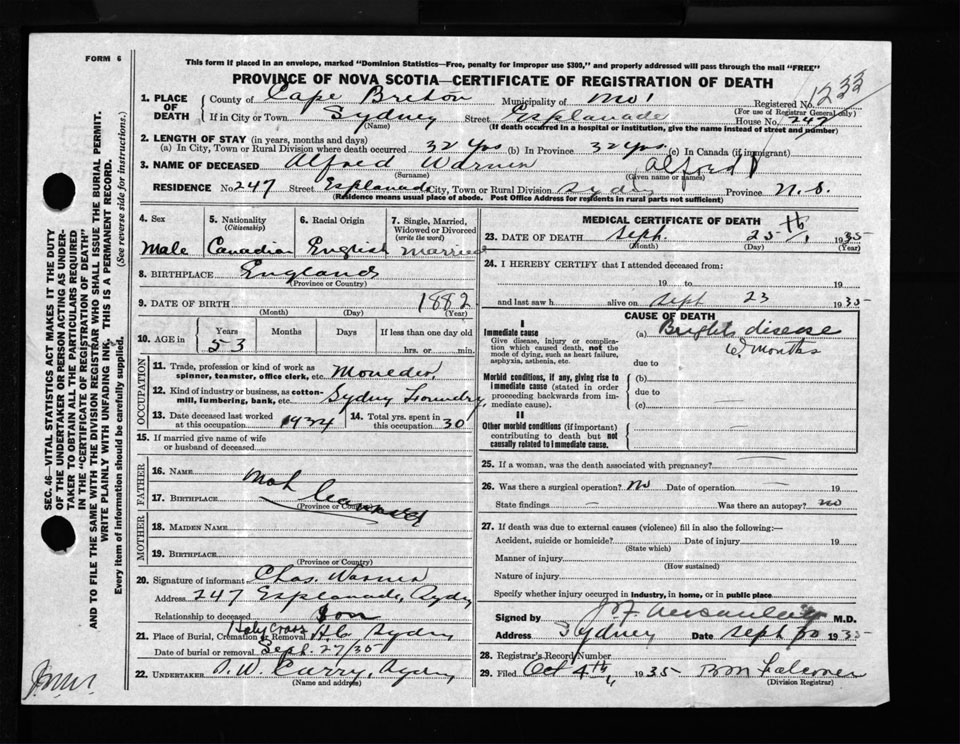 FORM 6
This form if placed in an envelope, marked "Dominion Statistics—Free, penalty for improper use $300," and properly addressed will pass through the mail "FREE"
PROVINCE OF NOVA SCOTIA—CERTIFICATE OF REGISTRATION OF DEATH
1233
1. PLACE OF DEATH County of Cape Breton Municipality of Registered No.
(For use of Registrar General only)
If in City or Town Sydney Street Esplanade House No. 247
(Name) (If death occurred in a hospital or institution, give the name instead of street and number)
2. LENGTH OF STAY (in years, months and days)
(a) In City, Town or Rural Division where death occurred 32 yrs (b) In Province 32 yrs. (c) In Canada (if immigrant)
3. NAME OF DECEASED Alfred Warner Alfred
(Surname) (Given name or names)
RESIDENCE No. 247 Street Esplanade City, Town or Rural Division Sydney Province N.S.
(Residence means usual place of abode. Post Office Address for residents in rural parts not sufficient)
4. Sex Male
5. Nationality (Citizenship) Canadian
6. Racial Origin English
7. Single, Married, Widowed or Divorced (write the word) Married
8. BIRTHPLACE England
(Province or Country)
9. DATE OF BIRTH 1882
(Month) (Day) (Year)
10. AGE in Years Months Days If less than one day old
53 hrs. or min.
OCCUPATION
11. Trade, profession or kind of work as spinner, teamster, office clerk, etc. Moulder
12. Kind of industry or business, as cotton-mill, lumbering, bank, etc. Sydney Foundry
13. Date deceased last worked at this occupation 1934
14. Total yrs. spent in this occupation 30
15. If married give name of wife or husband of deceased
FATHER
16. NAME
Not
17. BIRTHPLACE
(Province or Country)
MOTHER
18. MAIDEN NAME
19. BIRTHPLACE
(Province or Country)
20. Signature of informant Chas. Warner
Address 247 Esplanade, Sydney
Relationship to deceased Son
21. Place of Burial, Cremation or Removal Holy Cross H.C. Sydney
Date of burial or removal Sept. 27/35
22. UNDERTAKER Curry, Sydney
(Name and address)
MEDICAL CERTIFICATE OF DEATH
23. DATE OF DEATH Sept. 25th, 1935
(Month) (Day) (Year)
24. I HEREBY CERTIFY that I attended deceased from:
19 to 19
and last saw h alive on Sept 23 1935
CAUSE OF DEATH
I
Immediate cause
Give disease, injury or complication which caused death, not the mode of dying, such as heart failure, asphyxia, asthenia, etc.
(a) Brights disease
6 months
due to
Morbid conditions, if any, giving rise to immediate cause (stated in order proceeding backwards from immediate cause).
(b)
due to
(c)
II
Other morbid conditions (if important) contributing to death but not causally related to immediate cause.
25. If a woman, was the death associated with pregnancy? —
26. Was there a surgical operation? No Date of operation — 19
State findings — Was there an autopsy? no
27. If death was due to external causes (violence) fill in also the following:—
Accident, suicide or homicide? Date of injury 19
(State which)
Manner of injury
(How sustained)
Nature of injury
Specify whether injury occurred in industry, in home, or in public place
Signed by M.D.
Address Sydney Date Sept 30 1935
28. Registrar's Record Number
29. Filed Oct 4th, 1935 Falconer
(Division Registrar)
SEC. 46—VITAL STATISTICS ACT MAKES IT THE DUTY
OF THE UNDERTAKER OR PERSON ACTING AS UNDER-
TAKER TO OBTAIN ALL THE PARTICULARS REQUIRED
IN THE "CERTIFICATE OF REGISTRATION OF DEATH"
AND TO FILE THE SAME WITH THE DIVISION REGISTRAR WHO SHALL ISSUE THE BURIAL PERMIT.
WRITE PLAINLY WITH UNFADING INK. THIS IS A PERMANENT RECORD.
Every item of information should be carefully supplied. (See reverse side for instructions.)